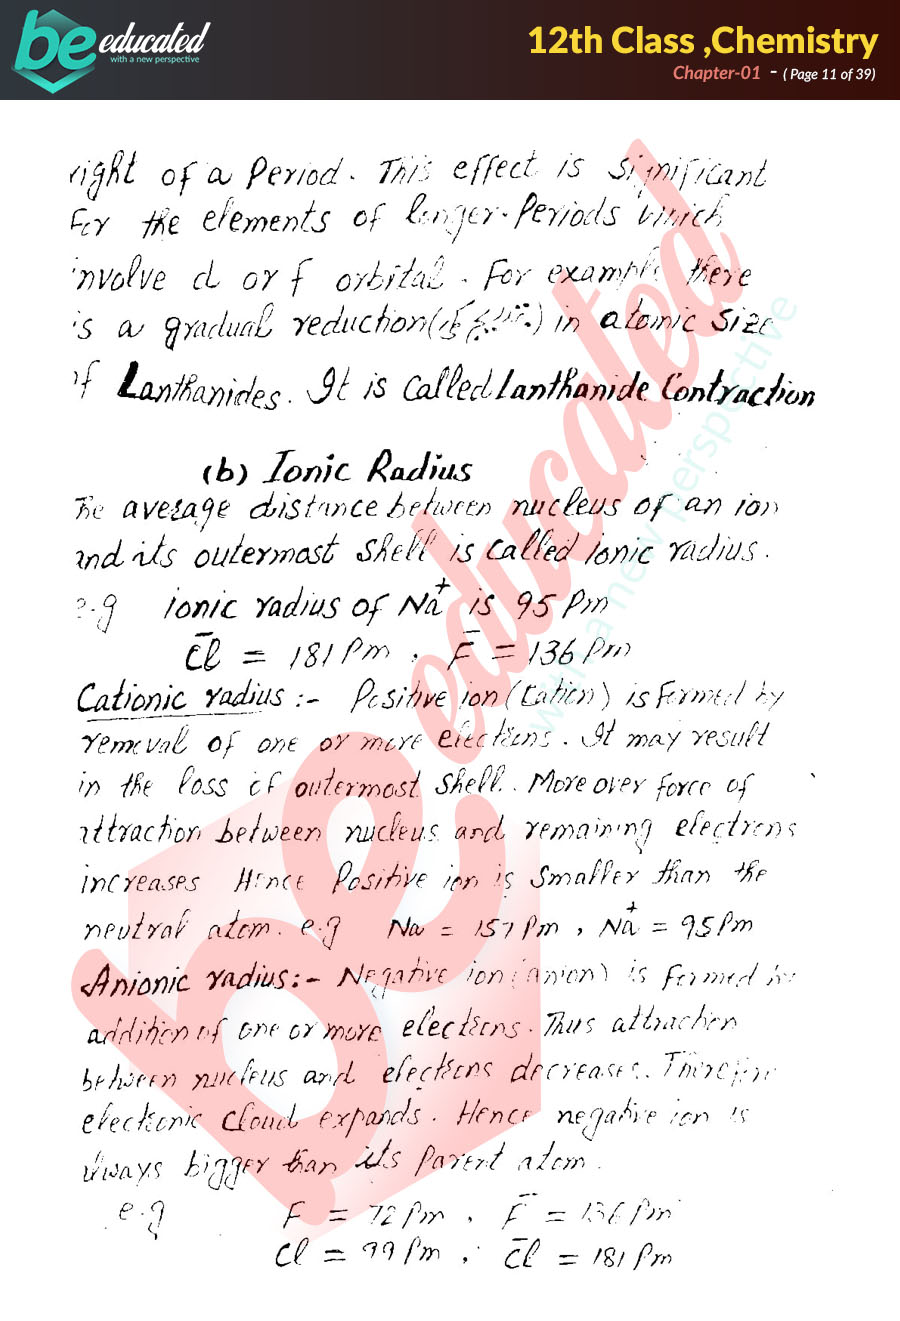 be educated
with a new perspective
12th Class ,Chemistry
Chapter-01 - ( Page 11 of 39)
right of a Period. This effect is significant
For the elements of longer Periods which
involve d or f orbital. For example there
is a gradual reduction() in atomic size
of Lanthanides. It is called Lanthanide Contraction
(b) Ionic Radius
The average distance between nucleus of an ion
and its outermost shell is called ionic radius.
e.g ionic radius of Na+ is 95 Pm
Cl− = 181 Pm , F− = 136 Pm
Cationic radius :- Positive ion (Cation) is formed by
removal of one or more electrons. It may result
in the loss of outermost shell. More over force of
attraction between nucleus and remaining electrons
increases Hence Positive ion is smaller than the
neutral atom. e.g Na = 157 Pm , Na+ = 95 Pm
Anionic radius:- Negative ion (anion) is formed by
addition of one or more electrons. Thus attraction
between nucleus and electrons decreases. Therefore
electronic cloud expands. Hence negative ion is
always bigger than its parent atom.
e.g F = 72 Pm , F− = 136 Pm
Cl = 99 Pm , Cl− = 181 Pm
be educated
with a new perspective